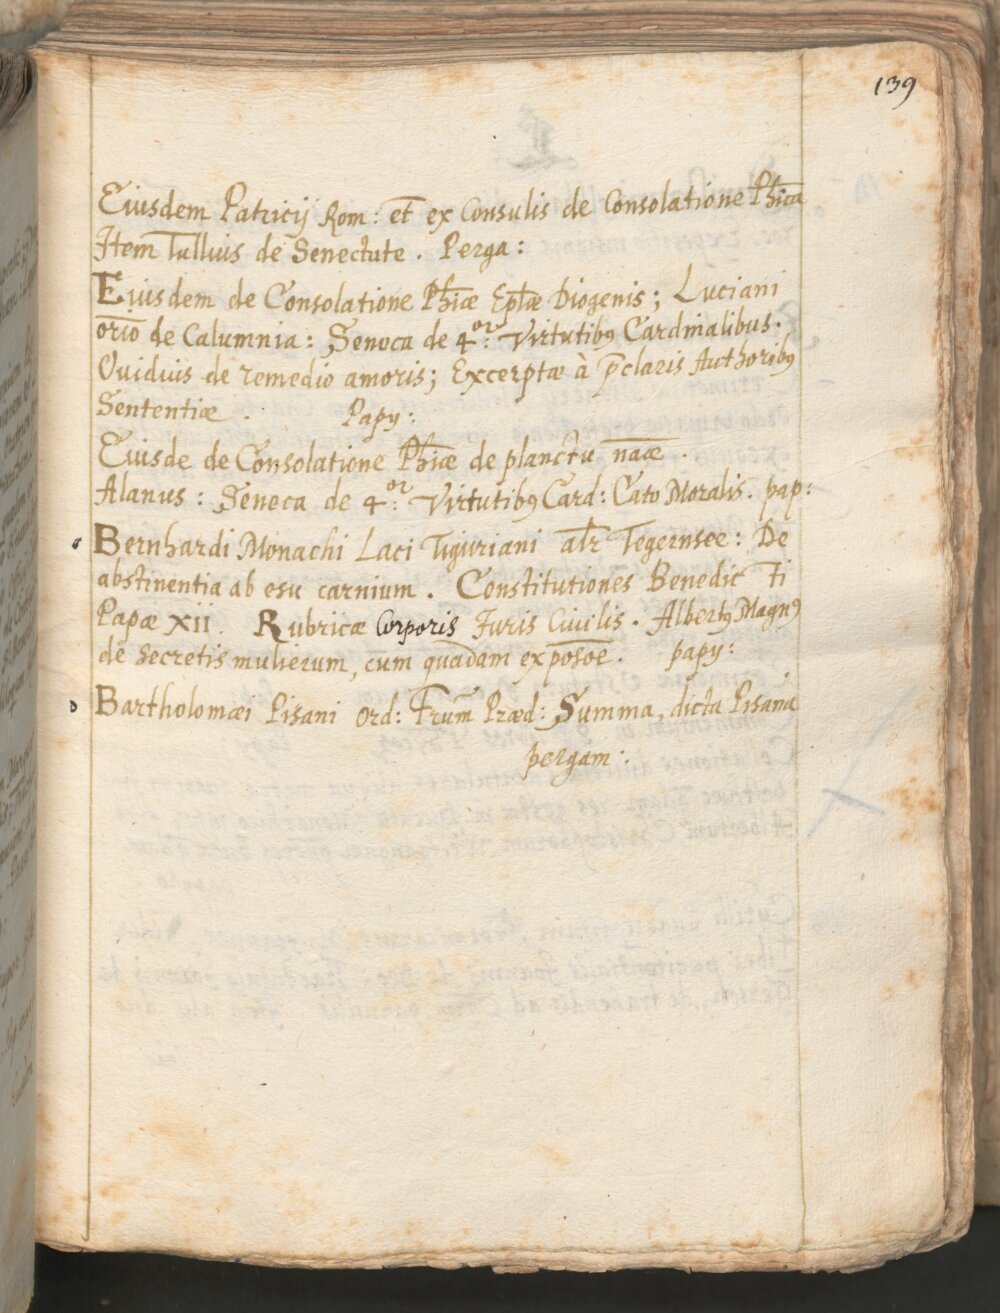 139
Eiusdem Patricij Rom: et ex Consulis de Consolatione Phīca
Item Tullius de Senectute. Perga:
Eiusdem de Consolatione Phīæ Eptæ Diogenis; Luciani
orīo de Calumnia: Seneca de 4.or Virtutibꝰ Cardinalibus.
Ouidius de remedio amoris; Excerptæ à p̄claris Authoribꝰ
Sententiæ. Papy:
Eiusde de Consolatione Phīæ de planctu n̄aæ.
Alanus: Seneca de 4.or Virtutibꝰ Card: Cato Moralis. pap:
Bernhardi Monachi Laci Tiguriani alr Tegernsee: De
abstinentia ab esu carnium. Constitutiones Benedic ti
Papæ XII. Rubricæ Corporis Iuris Ciuilis. Albertꝰ Magnꝰ
de secretis mulierum, cum quadam expōsoē. papy:
Bartholomæi Pisani Ord: Frum̄ Præd: Summa, dicta Pisana
pergam: